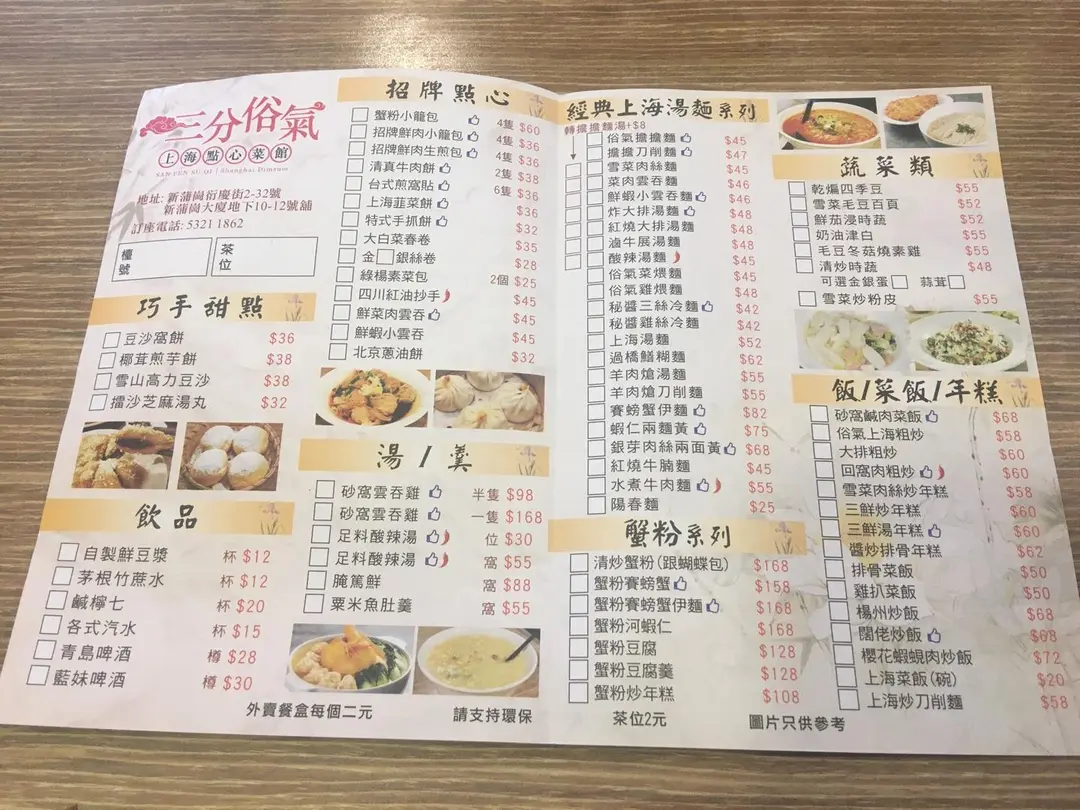 三分俗氣
上海點心菜館
SAN FEN SU QI | Shanghai Dimsum
地址: 新蒲崗衍慶街2-32號
新蒲崗大廈地下10-12號舖
訂座電話: 5321 1862
檯號
茶位
巧手甜點
豆沙窩餅 $36
椰茸煎芋餅 $38
雪山高力豆沙 $38
擂沙芝麻湯丸 $32
飲品
自製鮮豆漿 杯 $12
茅根竹蔗水 杯 $12
鹹檸七 杯 $20
各式汽水 杯 $15
青島啤酒 樽 $28
藍妹啤酒 樽 $30
外賣餐盒每個二元
招牌點心
蟹粉小籠包 4隻 $60
招牌鮮肉小籠包 4隻 $36
招牌鮮肉生煎包 4隻 $36
清真牛肉餅 2隻 $38
台式煎窩貼 6隻 $36
上海韮菜餅 $36
特式手抓餅 $32
大白菜春卷 $35
金 銀絲卷 $28
綠楊素菜包 2個 $25
四川紅油抄手 $45
鮮菜肉雲吞 $45
鮮蝦小雲吞 $45
北京蔥油餅 $32
湯/羹
砂窩雲吞雞 半隻 $98
砂窩雲吞雞 一隻 $168
足料酸辣湯 位 $30
足料酸辣湯 窩 $55
腌篤鮮 窩 $88
粟米魚肚羹 窩 $55
請支持環保
經典上海湯麵系列
轉擔擔麵湯+$8
俗氣擔擔麵 $45
擔擔刀削麵 $47
雪菜肉絲麵 $45
菜肉雲吞麵 $46
鮮蝦小雲吞麵 $46
炸大排湯麵 $48
紅燒大排湯麵 $48
滷牛展湯麵 $48
酸辣湯麵 $45
俗氣菜煨麵 $45
俗氣雞煨麵 $48
秘醬三絲冷麵 $42
秘醬雞絲冷麵 $42
上海湯麵 $52
過橋鱔糊麵 $62
羊肉熗湯麵 $55
羊肉熗刀削麵 $55
賽螃蟹伊麵 $82
蝦仁兩麵黃 $75
銀芽肉絲兩面黃 $68
紅燒牛腩麵 $45
水煮牛肉麵 $55
陽春麵 $25
蟹粉系列
清炒蟹粉(跟蝴蝶包) $168
蟹粉賽螃蟹 $158
蟹粉賽螃蟹伊麵 $168
蟹粉河蝦仁 $168
蟹粉豆腐 $128
蟹粉豆腐羹 $128
蟹粉炒年糕 $108
茶位2元
蔬菜類
乾煸四季豆 $55
雪菜毛豆百頁 $52
鮮茄浸時蔬 $52
奶油津白 $55
毛豆冬菇燒素雞 $55
清炒時蔬 $48
可選金銀蛋 蒜茸
雪菜炒粉皮 $55
飯/菜飯/年糕
砂窩鹹肉菜飯 $68
俗氣上海粗炒 $58
大排粗炒 $60
回窩肉粗炒 $60
雪菜肉絲炒年糕 $58
三鮮炒年糕 $60
三鮮湯年糕 $60
醬炒排骨年糕 $62
排骨菜飯 $50
雞扒菜飯 $50
楊州炒飯 $68
闊佬炒飯 $68
櫻花蝦蜆肉炒飯 $72
上海菜飯(碗) $20
上海炒刀削麵 $58
圖片只供參考